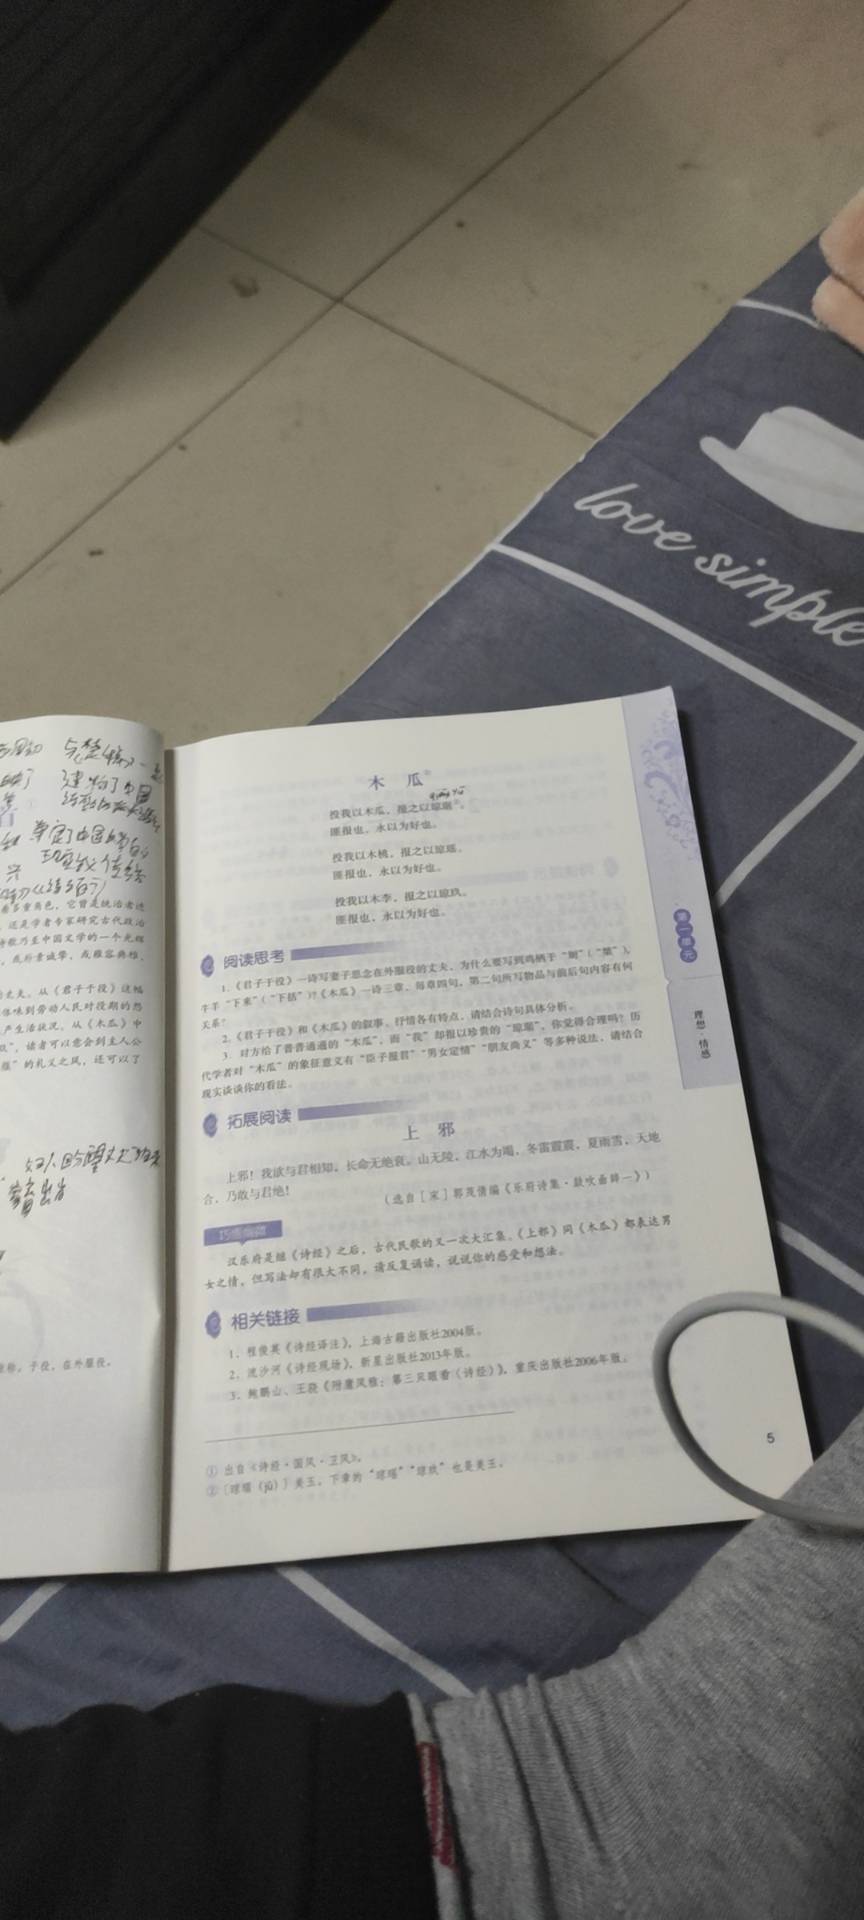 love simple
建构了中国
奠定了中国
着多重角色，它曾是统治者进
，还是学者专家研究古代政治
诗歌乃至中国文学的一个光辉
，或朴素诚挚，或雍容典雅，
的丈夫。从《君子于役》这幅
体味到劳动人民对役期的怨
产生活状况。从《木瓜》中
”，读者可以意会到主人公
”的礼义之风，还可以了
称。于役，在外服役。
木 瓜①
投我以木瓜，报之以琼琚②。
匪报也，永以为好也。
投我以木桃，报之以琼瑶。
匪报也，永以为好也。
投我以木李，报之以琼玖。
匪报也，永以为好也。
阅读思考
1. 《君子于役》一诗写妻子思念在外服役的丈夫，为什么要写到鸡栖于“埘”（“桀”），
牛羊“下来”（“下括”）？《木瓜》一诗三章，每章四句，第二句所写物品与前后句内容有何
关系？
2. 《君子于役》和《木瓜》的叙事、抒情各有特点，请结合诗句具体分析。
3. 对方给了普普通通的“木瓜”，而“我”却报以珍贵的“琼琚”，你觉得合理吗？历
代学者对“木瓜”的象征意义有“臣子报君”“男女定情”“朋友尚义”等多种说法，请结合
现实谈谈你的看法。
拓展阅读
上 邪
上邪！我欲与君相知，长命无绝衰。山无陵，江水为竭，冬雷震震，夏雨雪，天地
合，乃敢与君绝！
（选自［宋］郭茂倩编《乐府诗集·鼓吹曲辞一》）
汉乐府是继《诗经》之后，古代民歌的又一次大汇集。《上邪》同《木瓜》都表达男
女之情，但写法却有很大不同，请反复诵读，说说你的感受和想法。
相关链接
1. 程俊英《诗经译注》，上海古籍出版社2004版。
2. 流沙河《诗经现场》，新星出版社2013年版。
3. 鲍鹏山、王骁《附庸风雅：第三只眼看〈诗经〉》，重庆出版社2006年版。
① 出自《诗经·国风·卫风》。
② ［琼琚（jū）］美玉。下章的“琼瑶”“琼玖”也是美玉。
第一单元
理想·情感
5